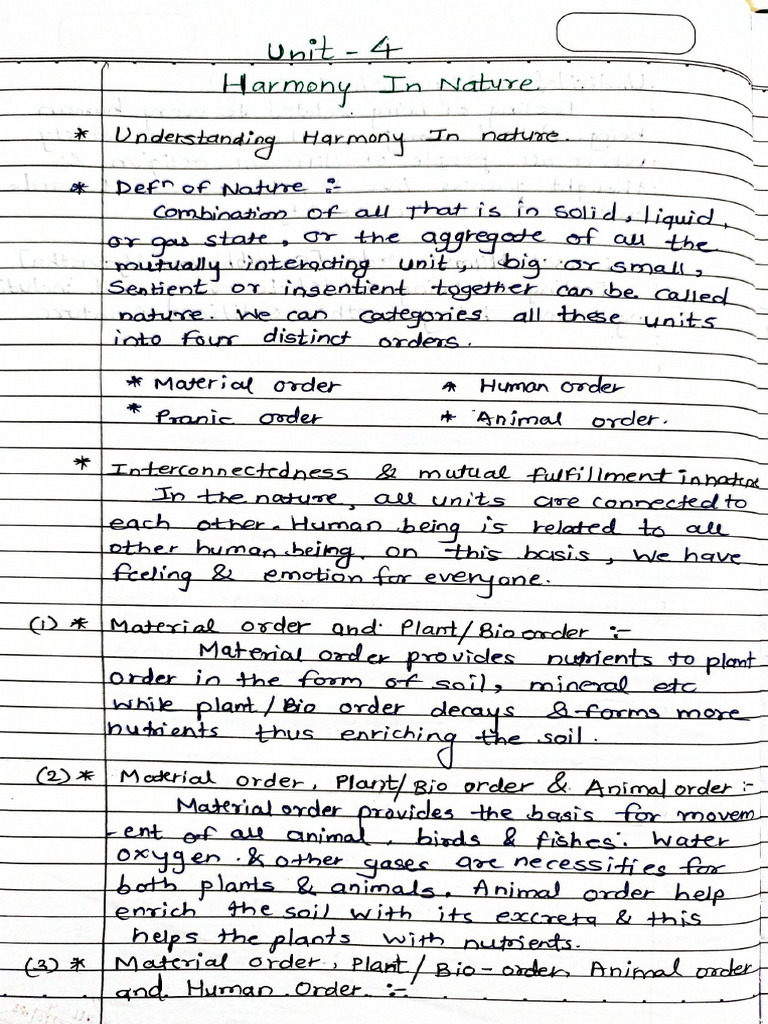 Unit - 4
Harmony In Nature
* Understanding Harmony In nature.
* Defⁿ of Nature :-
Combination of all that is in solid, liquid,
or gas state, or the aggregate of all the
mutually interacting unit, big or small,
Sentient or insentient together can be called
nature. We can categories all these units
into four distinct orders.
* Material order * Human order
* Pranic order * Animal order.
* Interconnectedness & mutual fulfillment in nature
In the nature, all units are connected to
each other. Human being is related to all
other human being. on this basis, we have
feeling & emotion for everyone.
(1) * Material order and Plant/Bio order :-
Material order provides nutrients to plant
order in the form of soil, mineral etc
while plant/Bio order decays & forms more
nutrients thus enriching the soil.
(2) * Material order, Plant/Bio order & Animal order :-
Material order provides the basis for movem
-ent of all animal, birds & fishes. Water
oxygen & other gases are necessities for
both plants & animals. Animal order help
enrich the soil with its excreta & this
helps the plants with nutrients.
(3) * Material order, Plant/Bio-order, Animal order
and Human Order :-